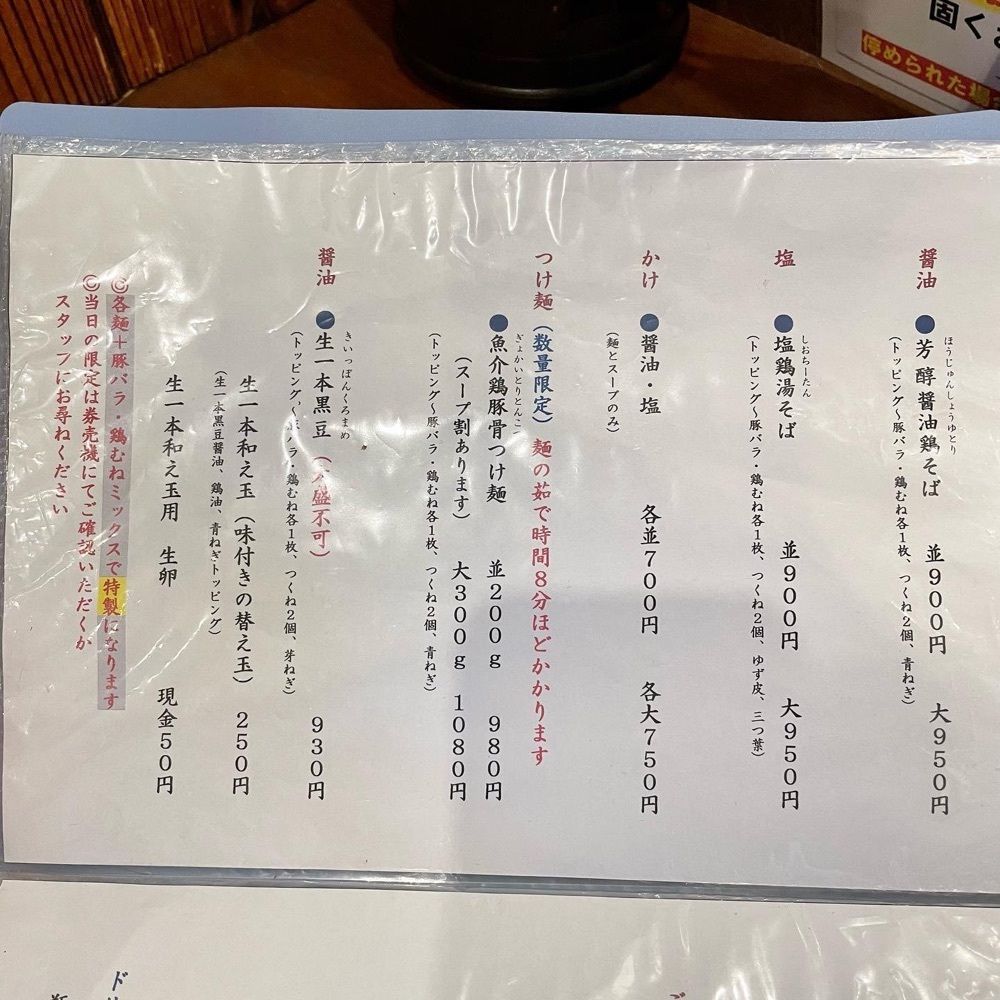 固く
停められた
醤油
ほうじゅんしょうゆとり
●芳醇醤油鶏そば 並900円 大950円
(トッピング~豚バラ・鶏むね各1枚、つくね2個、青ねぎ)
塩
しおちーたん
●塩鶏湯そば 並900円 大950円
(トッピング~豚バラ・鶏むね各1枚、つくね2個、ゆず皮、三つ葉)
かけ
●醤油・塩 各並700円 各大750円
(麺とスープのみ)
つけ麺(数量限定)麺の茹で時間8分ほどかかります
ぎょかいとりとんこ
●魚介鶏豚骨つけ麺 並200g 980円
(スープ割あります) 大300g 1080円
(トッピング~豚バラ・鶏むね各1枚、つくね2個、青ねぎ)
醤油
きいっぽんくろまめ
●生一本黒豆(大盛不可) 930円
(トッピング~豚バラ・鶏むね各1枚、つくね2個、芽ねぎ)
生一本和え玉(味付きの替え玉) 250円
(生一本黒豆醤油、鶏油、青ねぎトッピング)
生一本和え玉用 生卵 現金50円
©各麺+豚バラ・鶏むねミックスで特製になります
©当日の限定は券売機にてご確認いただくか
スタッフにお尋ねください